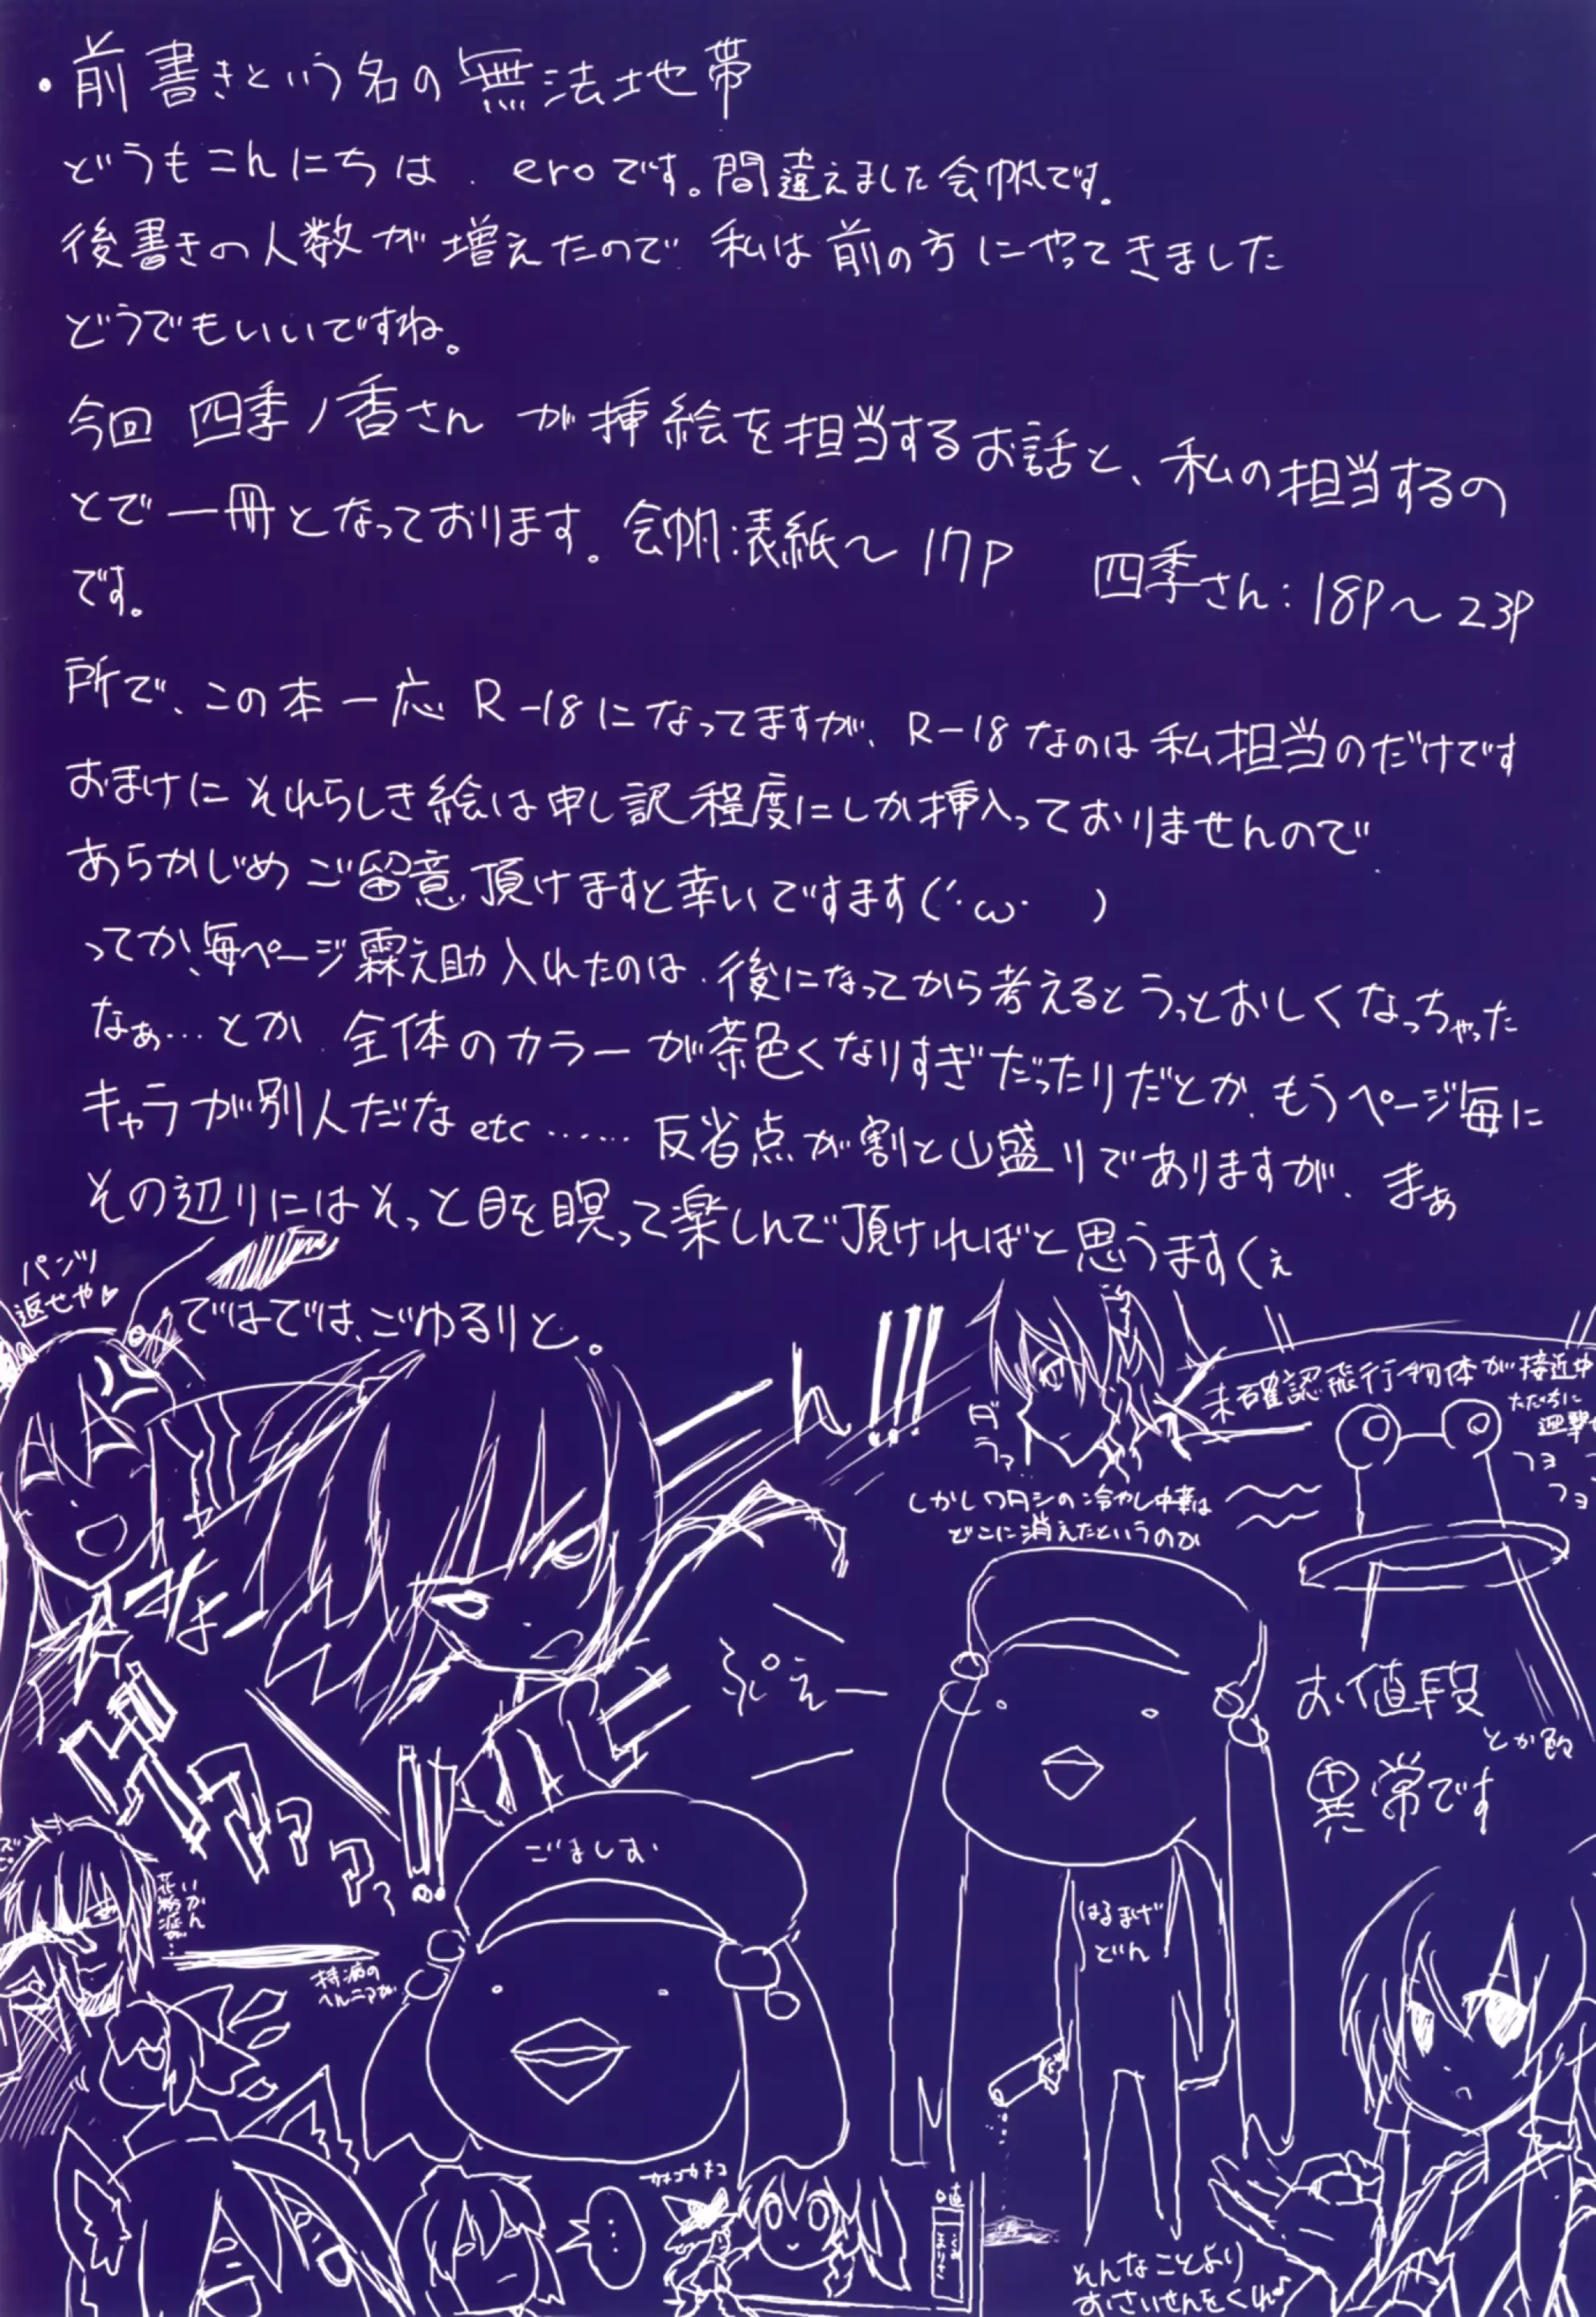 ・前書きという名の無法地帯
どうもこんにちは、eroです。間違えました会帆です。
後書きの人数が増えたので私は前の方にやってきました
どうでもいいですね。
今回 四季ノ香さん が挿絵を担当するお話と、私の担当するの
とで一冊となっております。会帆:表紙～17P 四季さん:18P～23P
です。
所で、この本一応R-18になってますが、R-18なのは私担当のだけです
おまけにそれらしき絵は申し訳程度にしか挿入っておりませんので
あらかじめご留意頂けますと幸いですます(´･ω･ )
ってか、毎ページ霖之助入れたのは、後になってから考えるとうっとおしくなっちゃった
なぁ…とか、全体のカラーが茶色くなりすぎだったりだとか、もうページ毎に
キャラが別人だなetc……反省点が割と山盛りでありますが、まぁ
その辺りにはそっと目を瞑って楽しんで頂ければと思うますくぇ
ではでは、ごゆるりと。
パンツ
返せや♥
なーーん!!!
ダラァ
未確認飛行物体が接近中
ただちに
迎撃
フヨ
フヨ
しかしワタシの冷やし中華は
どこに消えたというのか
ぷえー
お値段
とか色々
異常です
ゲファァァッ!!
ごましお
はるまげ
どん
いかん
花粉症が…
持病の
ヘルニアが
…
カネゴカネコ
そんなことより
おさいせんをくれ♪